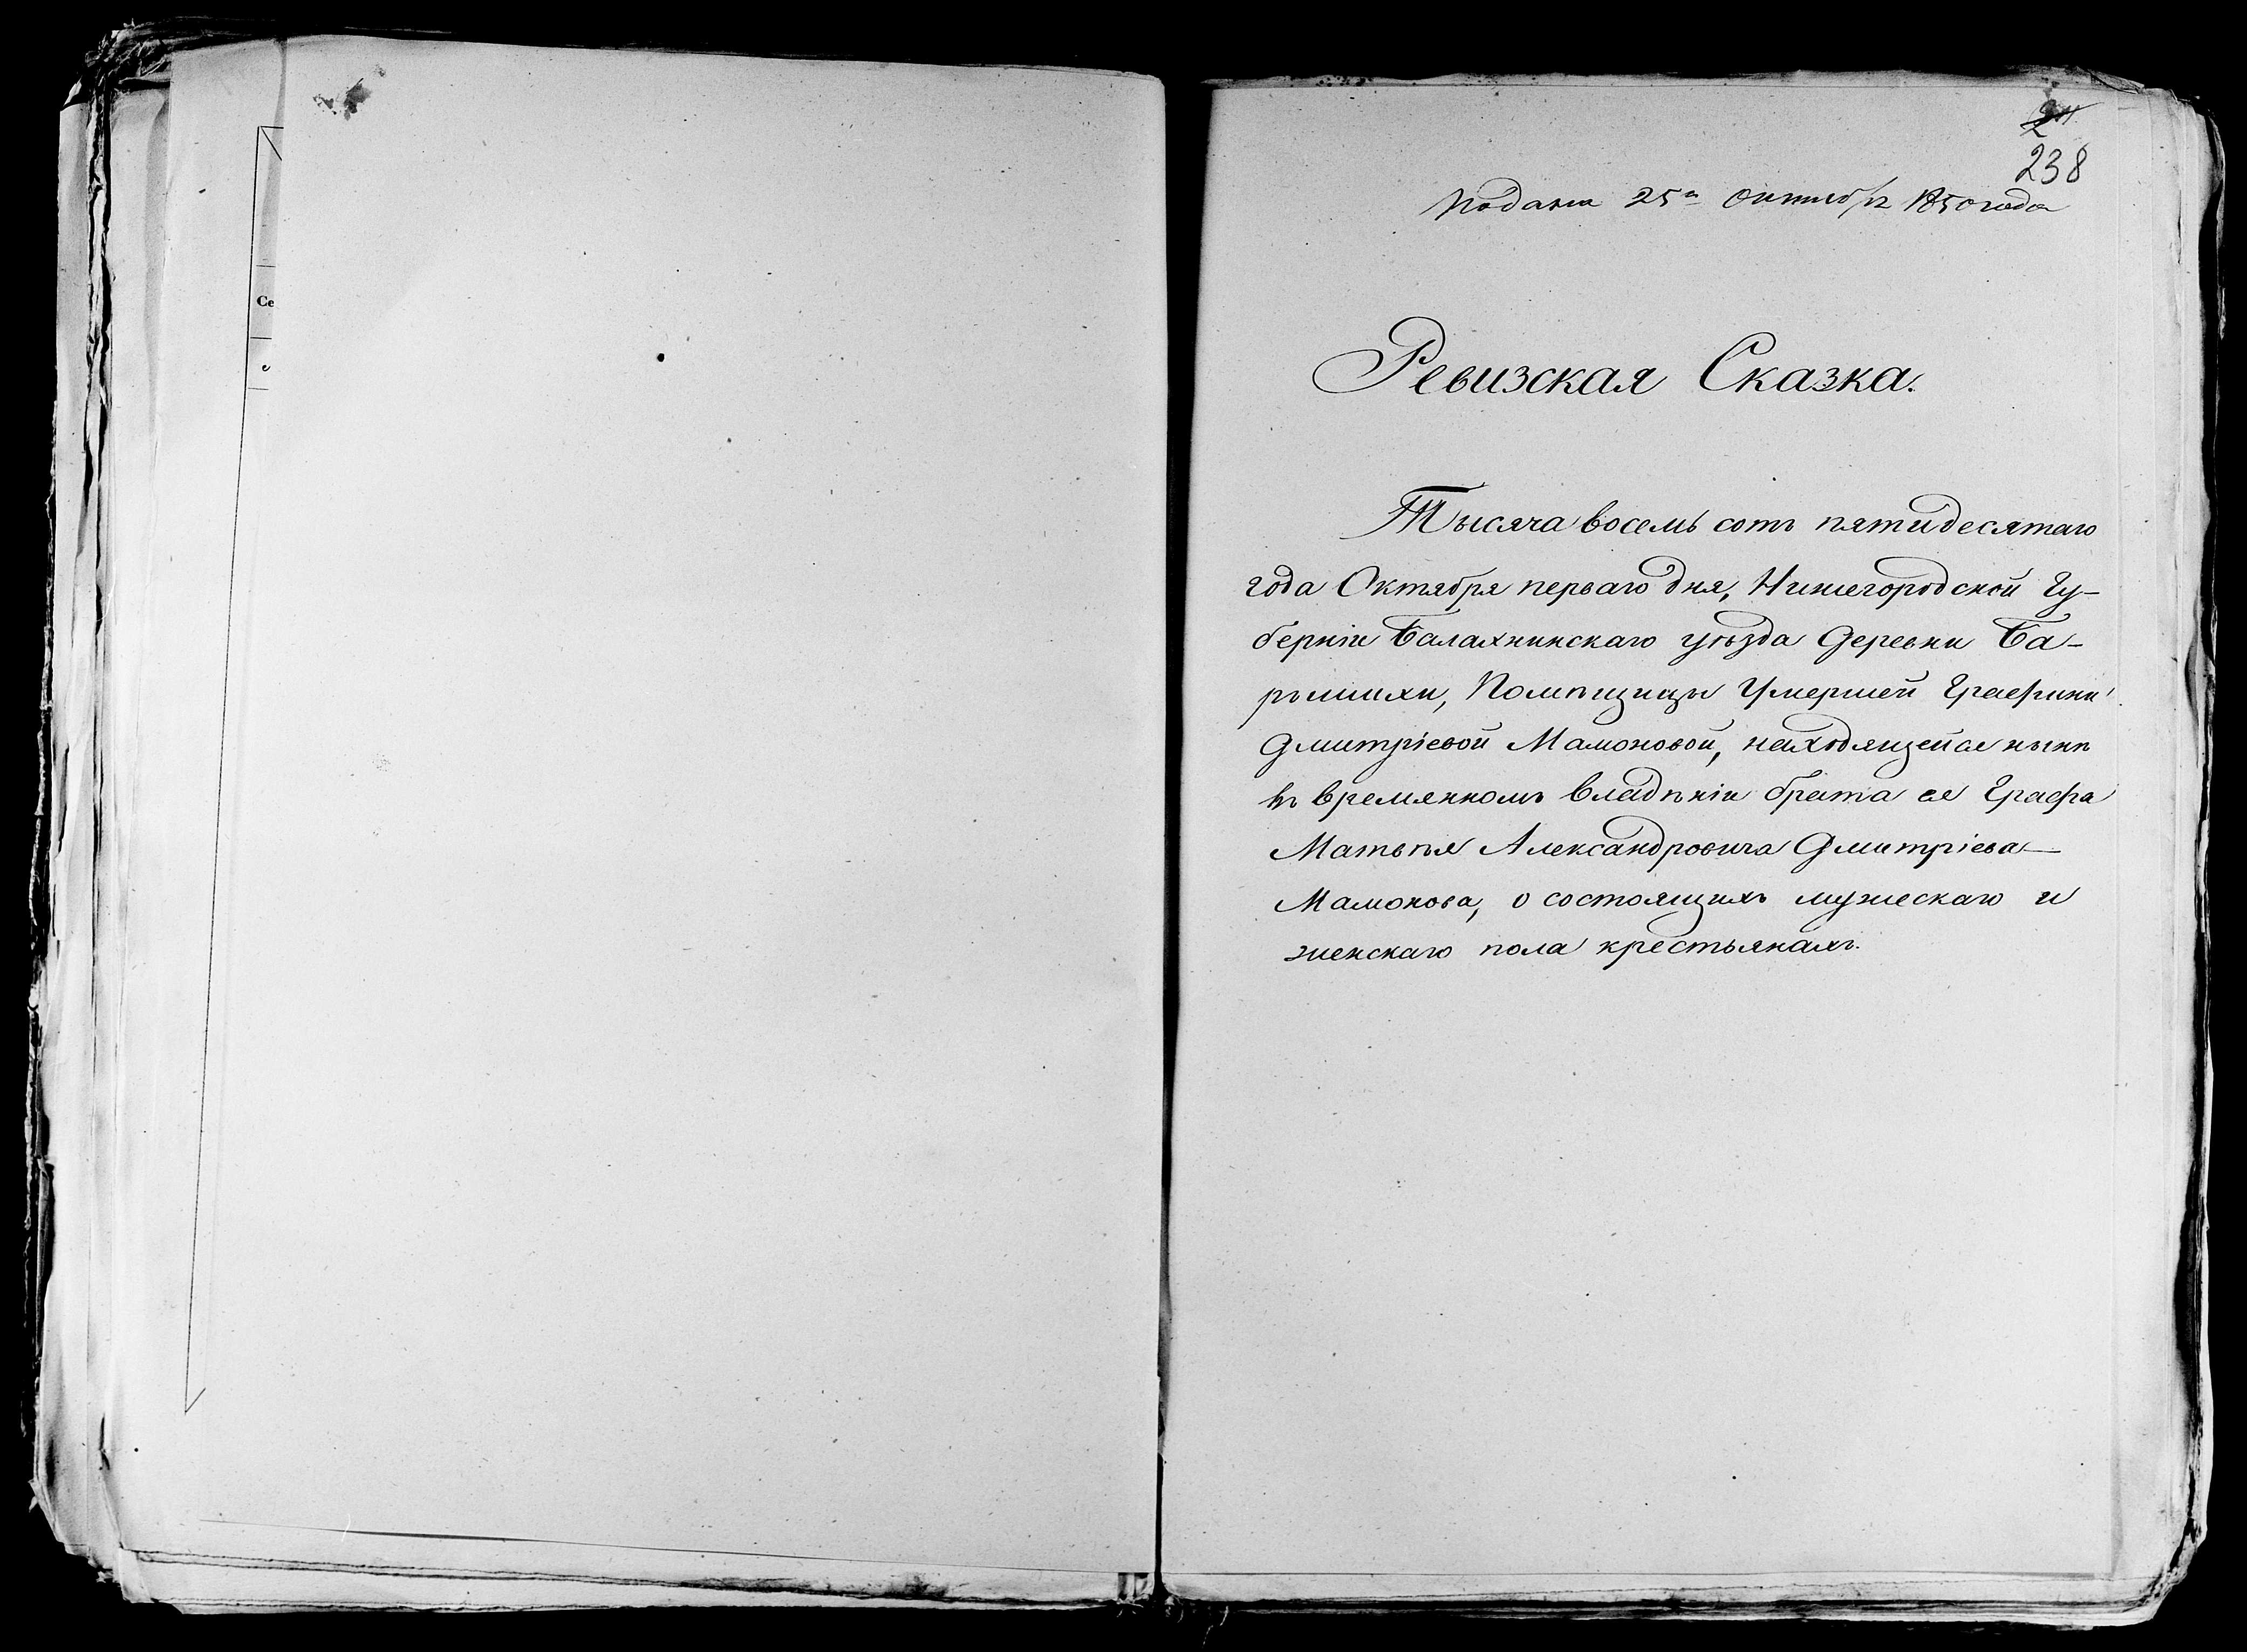 Се
238
Подана 25го Октября 1850 года
Ревизская Сказка.
Тысяча восемь сотъ пятидесятаго
года Октября перваго дня, Нижегородской Гу-
берніи Балахнинскаго уѣзда Деревни Ба-
рышихи, Помѣщицы Умершей Графини
Дмитріевой Мамоновой, находящейся нынѣ
въ временномъ владѣніи брата ея Графа
Матвѣя Александровича Дмитріева-
Мамонова, о состоящихъ мужескаго и
женскаго пола крестьянахъ.